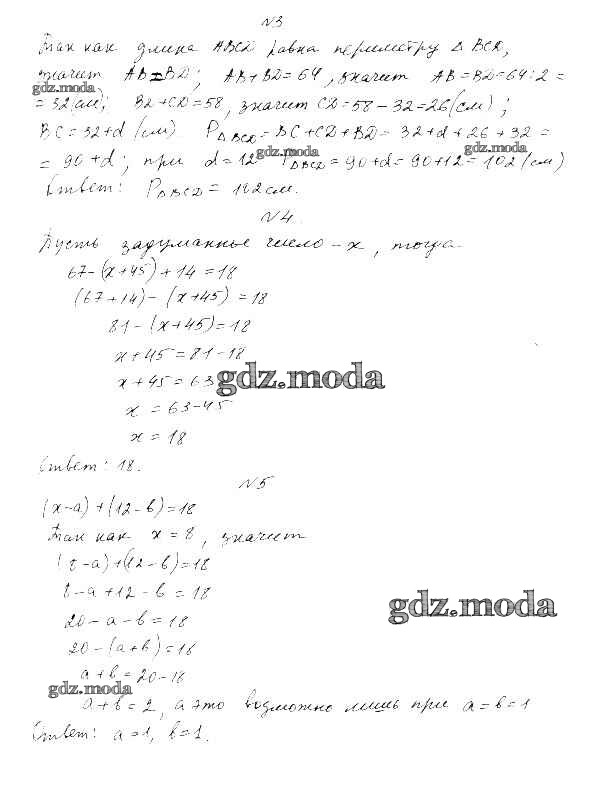 N3
Так как длина ABCD равна периметру △ BCD,
значит AB=BD; AB+BD=64, значит AB=BD=64:2=
gdz.moda
=32(см); BD+CD=58, значит CD=58-32=26(см);
BC=32+d (см) P△BCD=BC+CD+BD=32+d+26+32=
gdz.moda gdz.moda
=90+d; при d=12 P△BCD=90+d=90+12=102(см)
Ответ: P△BCD=102см.
gdz.moda
N4.
Пусть задуманные число-x, тогда
67-(x+45)+14=18
(67+14)-(x+45)=18
81-(x+45)=18
x+45=81-18
x+45=63
gdz.moda
x=63-45
x=18
Ответ: 18.
N5
(x-a)+(12-b)=18
Так как x=8, значит
(8-a)+(12-b)=18
8-a+12-b=18
gdz.moda
20-a-b=18
20-(a+b)=18
a+b=20-18
gdz.moda
a+b=2, а это возможно лишь при a=b=1
Ответ: a=1, b=1.